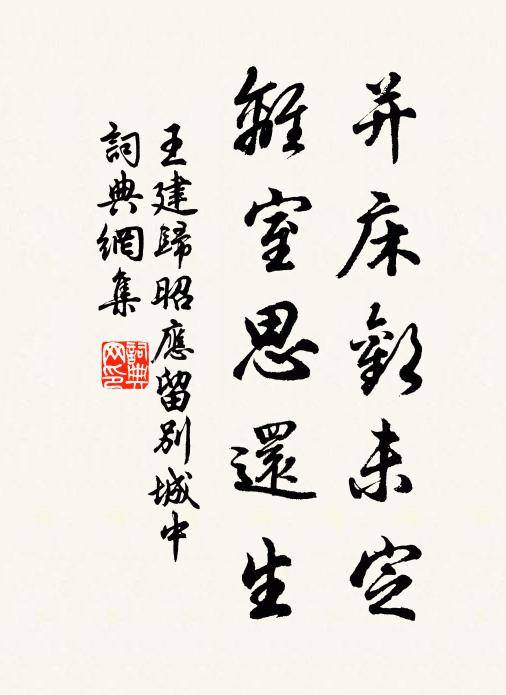 并床歡未定
離室思還生
王建歸昭應留別城中
詞典網集
詞典
网印